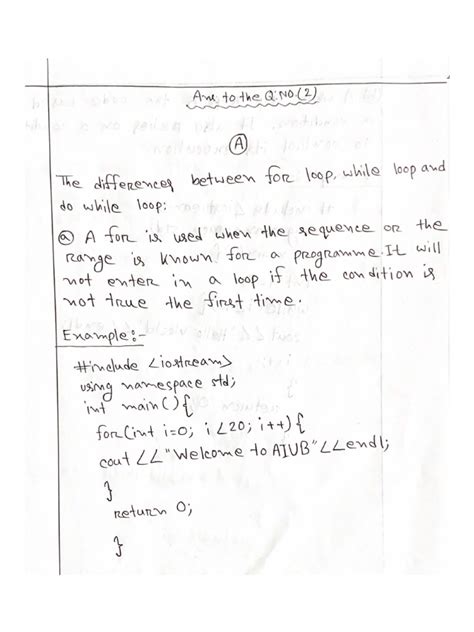 Ans to the Q.NO.(2)
A
The differences between for loop, while loop and
do while loop:
a A for is used when the sequence or the
range is known for a programme. It will
not enter in a loop if the condition is
not true the first time.
Example:-
#include <iostream>
using namespace std;
int main(){
for(int i=0; i<20; i++){
cout << "Welcome to AIUB"<<endl;
}
return 0;
}